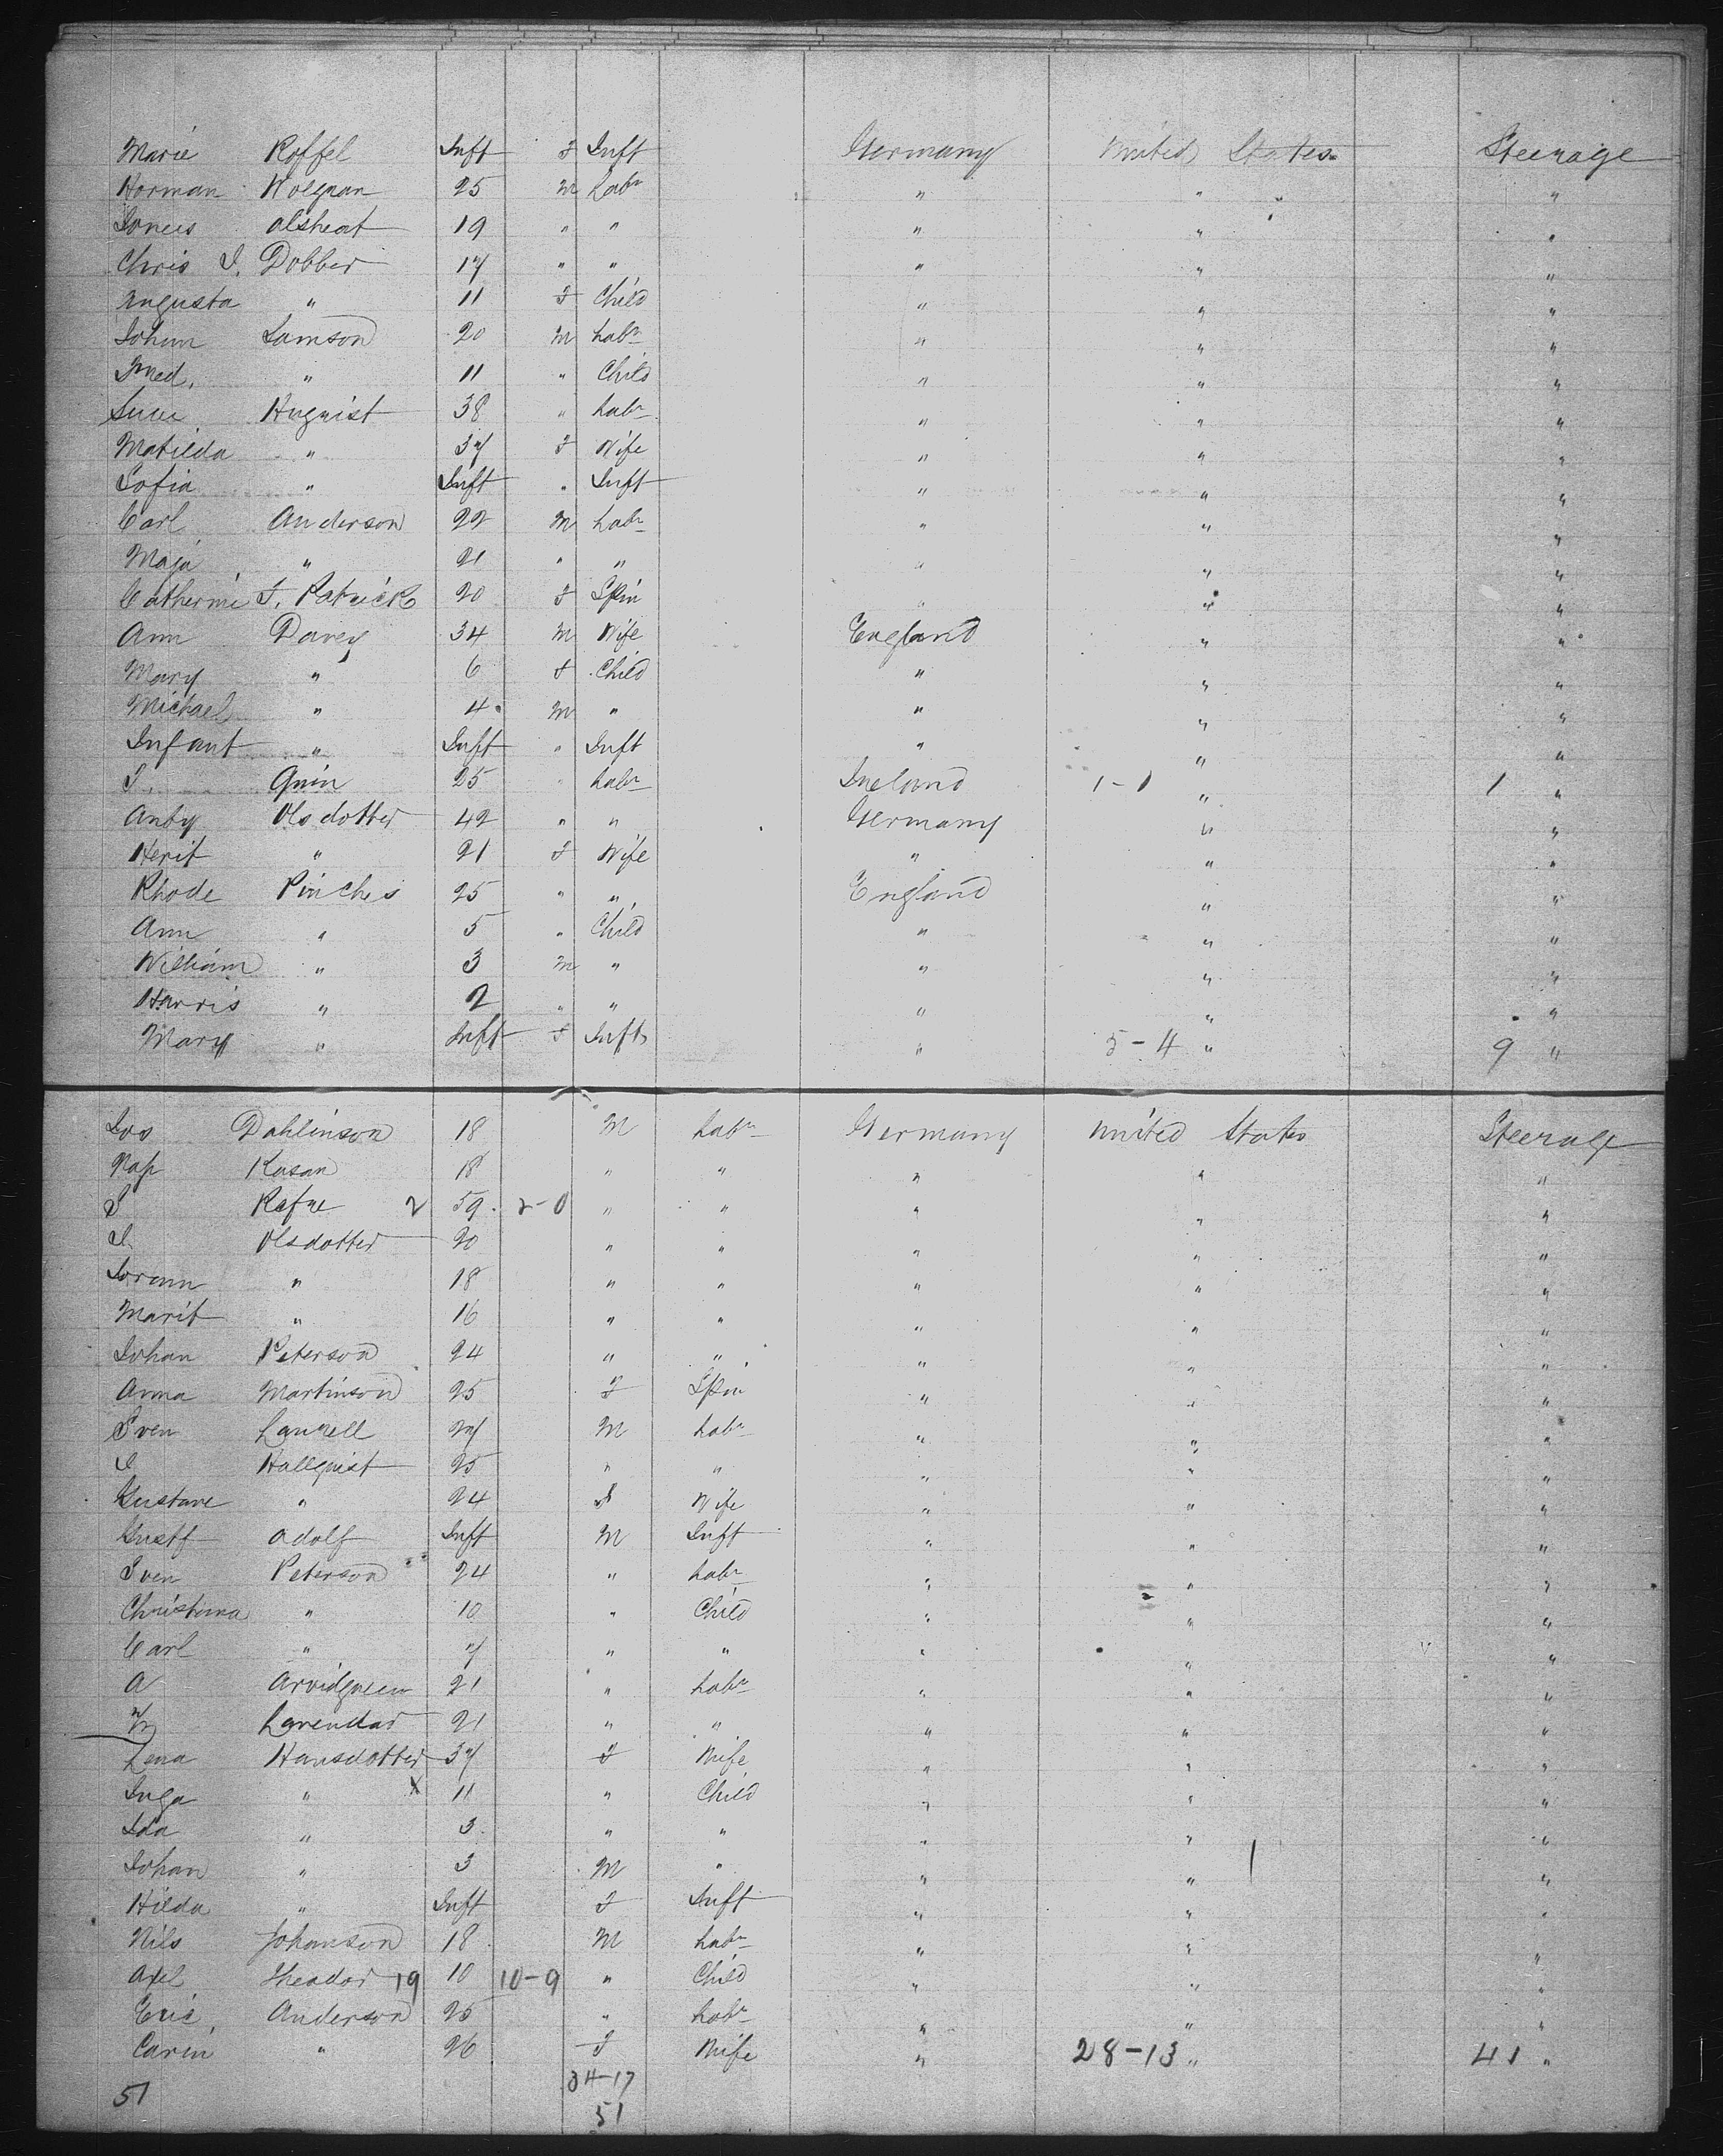 Marie Roffel Inft F Inft Germany United States Steerage
Herman Wolgran 25 M Labr " " "
19 " " " " "
Chris J. Dobber 17 " " " " "
Augusta " 11 F Child " " "
Johan Samson 20 M Labr " " "
Fred. " 11 " Child " " "
Huquist 38 " Labr " " "
Matilda " 37 F Wife " " "
Sofia " Inft " Inft " " "
Carl Anderson 22 M Labr " " "
Maja " 21 " " " " "
Catherine F. Patrick 20 F Spin " " "
Ann Davey 34 M Wife England " "
Mary " 6 F Child " " "
Michael " 4 M " " " "
Infant " Inft " Inft " " "
J. Quin 25 " Labr Ireland 1-1 " 1 "
Olsdotter 42 " " Germany " "
Herit " 21 F Wife " " "
Rhode Pinches 25 " " England " "
Ann " 5 " Child " " "
William " 3 M " " " "
Harris " 2 " " " " "
Mary " Inft F Inft " 5-4 " 9 "
Dahlinson 18 M Labr Germany United States Steerage
Kasan 18 " " " " "
2 59 2-0 " " " " "
J. Olsdotter 20 " " " " "
" 18 " " " " "
Marit " 16 " " " " "
Johan Peterson 24 " " " " "
Anna Martinson 25 F Spin " " "
Sven Laurell 27 M Labr " " "
J. Hallquist 25 " " " " "
Gustave " 24 F Wife " " "
Gustf Adolf Inft M Inft " " "
Sven Peterson 24 " Labr " " "
Christinna " 10 " Child " " "
Carl " 7 " " " " "
A 21 " Labr " " "
Lavendar 21 " " " " "
Lena Hansdotter 37 F Wife " " "
Inga " x 11 " Child " " "
Ida " 3 " " " " "
Johan " 3 M " " " "
Hilda " Inft F Inft " " "
Nils Johanson 18 M Labr " " "
Axel Theador 19 10 10-9 " Child " " "
Eric Anderson 25 " Labr " " "
Carin " 26 F Wife " 28-13 " 41 "
34-17
51 51